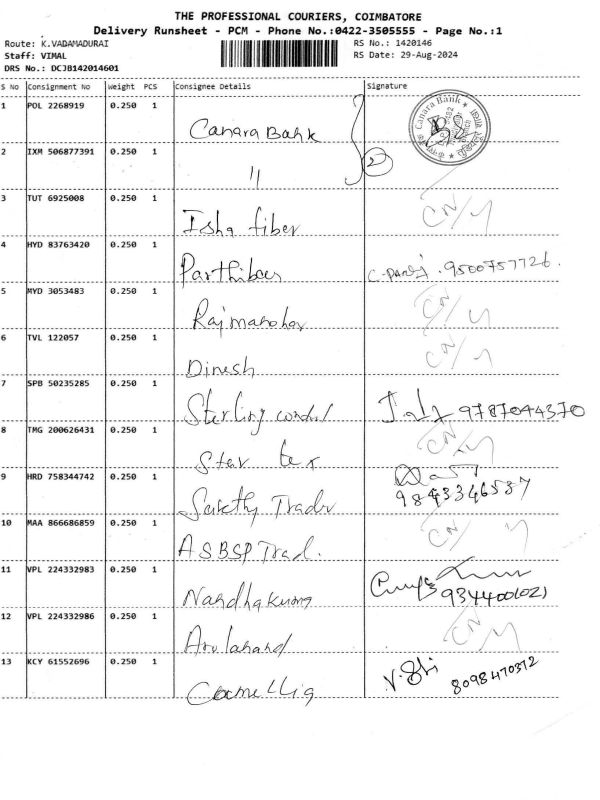 THE PROFESSIONAL COURIERS, COIMBATORE
Delivery Runsheet - PCM - Phone No.:0422-3505555 - Page No.:1
Route: K.VADAMADURAI RS No.: 1420146
Staff: VIMAL RS Date: 29-Aug-2024
DRS No.: DCJB142014601
S No Consignment No Weight PCS Consignee Details Signature
1 POL 2268919 0.250 1 Canara Bank
2 IXM 506877391 0.250 1 〃 2
3 TUT 6925008 0.250 1 Isha fiber
4 HYD 83763420 0.250 1 Parthiban 9500757726.
5 MYD 3053483 0.250 1 Rajmanohar
6 TVL 122057 0.250 1 Dinesh
7 SPB 50235285 0.250 1 Sterling 9787044370
8 TMG 200626431 0.250 1 Star tex
9 HRD 758344742 0.250 1 9843346537
10 MAA 866686859 0.250 1 ASBSP Trad.
11 VPL 224332983 0.250 1
12 VPL 224332986 0.250 1
13 KCY 61552696 0.250 1 8098470372
Canara Bank